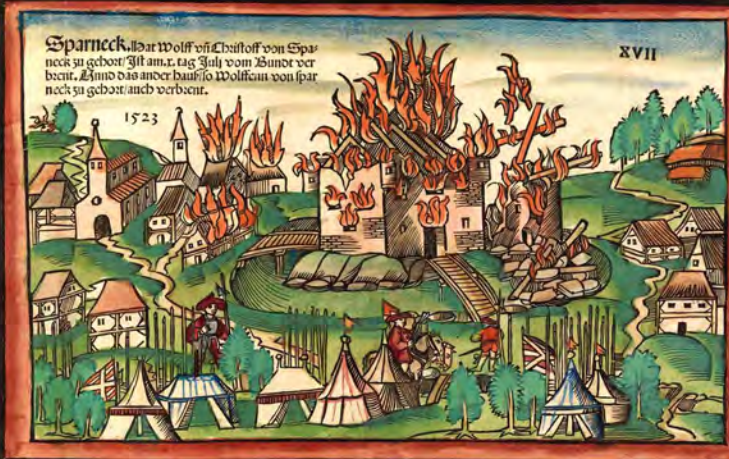 Sparneck. Hat Wolff vñ Christoff von Spa-
neck zu gehort/ Ist am.x. tag Julij vom Bundt ver
brent. Vnnd das ander hauß/ so Wolffenn von spar
neck zu gehort/ auch verbrent.
XVII
1523